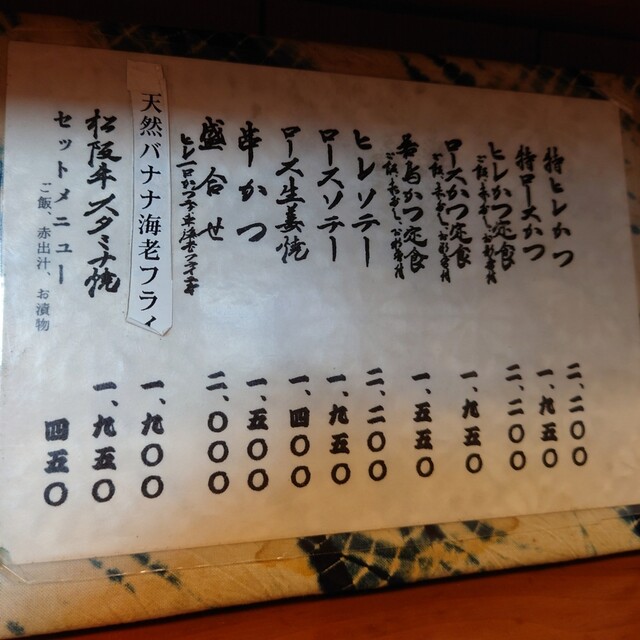 特ヒレかつ 二、二〇〇
特ロースかつ 一、九五〇
ヒレかつ定食 二、二〇〇
ご飯、赤だし、お新香付
ロースかつ定食 一、九五〇
ご飯、赤だし、お新香付
かつ定食 一、五五〇
ご飯、赤だし、お新香付
ヒレソテー 二、二〇〇
ロースソテー 一、九五〇
ロース生姜焼 一、四〇〇
串かつ 一、五〇〇
盛合せ 二、〇〇〇
天然バナナ海老フライ 一、九〇〇
松阪牛スタミナ焼 一、九五〇
セットメニュー 四五〇
ご飯、赤出汁、お漬物